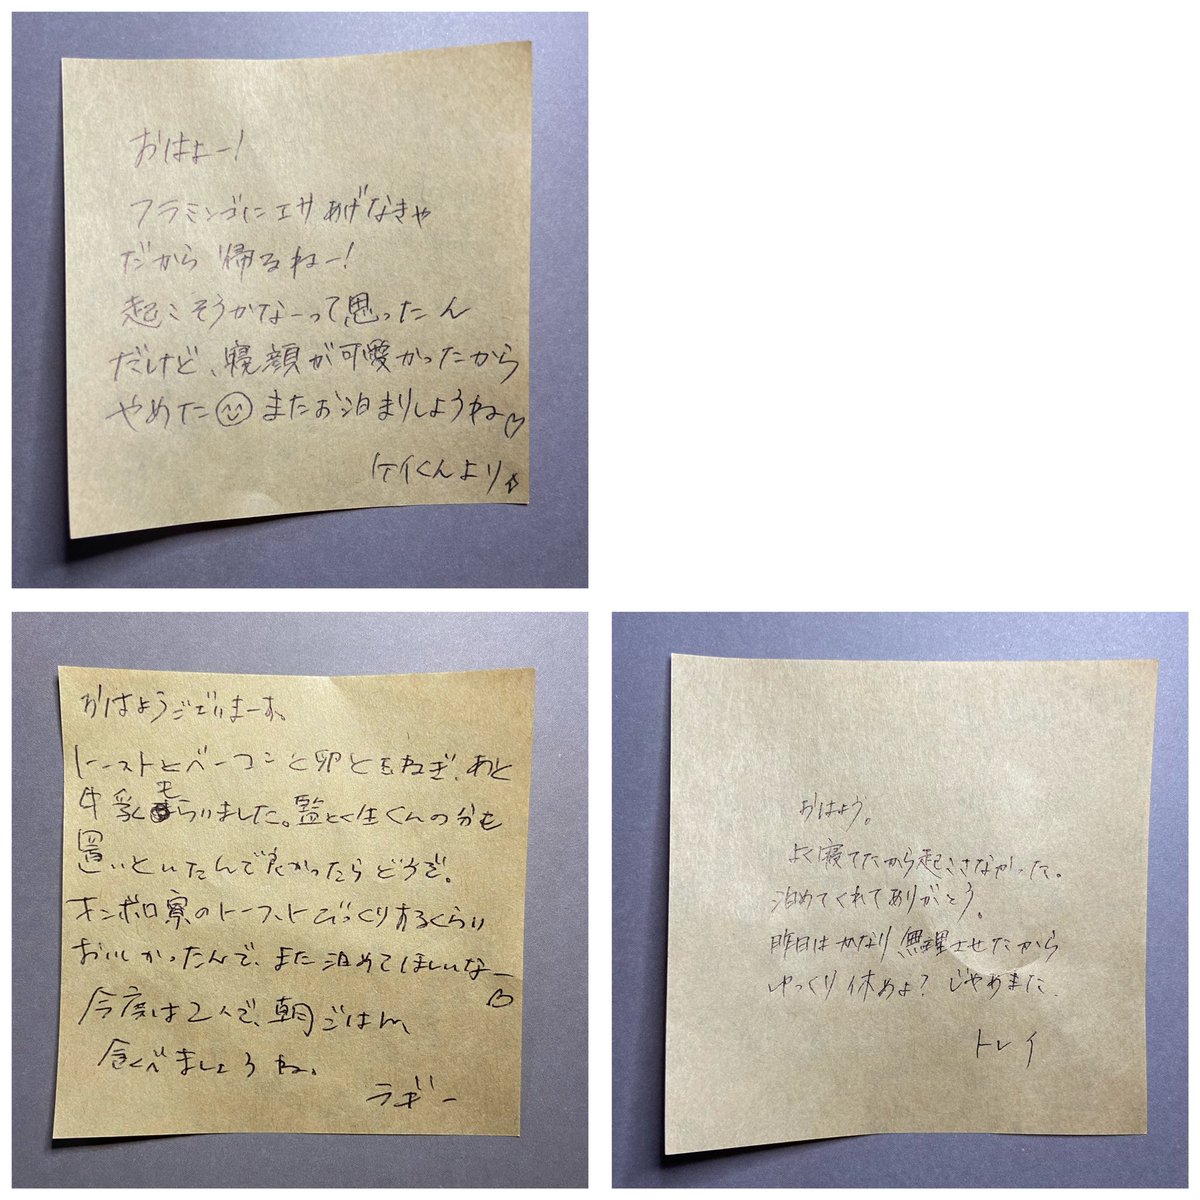 おはよー!
フラミンゴにエサあげなきゃ
だから帰るねー!
起こそうかなーって思ったん
だけど、寝顔が可愛かったから
やめた またお泊まりしようね♡
ケイくんより
おはようございまーす。
トーストとベーコンと卵と玉ねぎ、あと
牛乳もらいました。監とく生くんの分も
置いといたんで良かったらどうぞ。
オンボロ寮のトーストびっくりするくらい
おいしかったんで、また泊めてほしいなー♡
今度は2人で、朝ごはん
食べましょうね。
ラギー
おはよう。
よく寝てたから起こさなかった。
泊めてくれてありがとう。
昨日はかなり無理させたから
ゆっくり休めよ?じゃあまた
トレイ